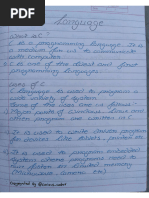 Language
What is C?
C is a programming language. It is
with computer.
C is one of the oldest and finest
programming languages.
Uses of C
C language is used to program a
wide variety of system.
Some of the uses are as follows:
Major parts of windows, Linux
other program are written in C.
C is used to write driver program
for devices like Tablets, printers
etc.
C is used to program embedded
System where programs need to
run faster in limited memory
(Microwave, Cameras etc)